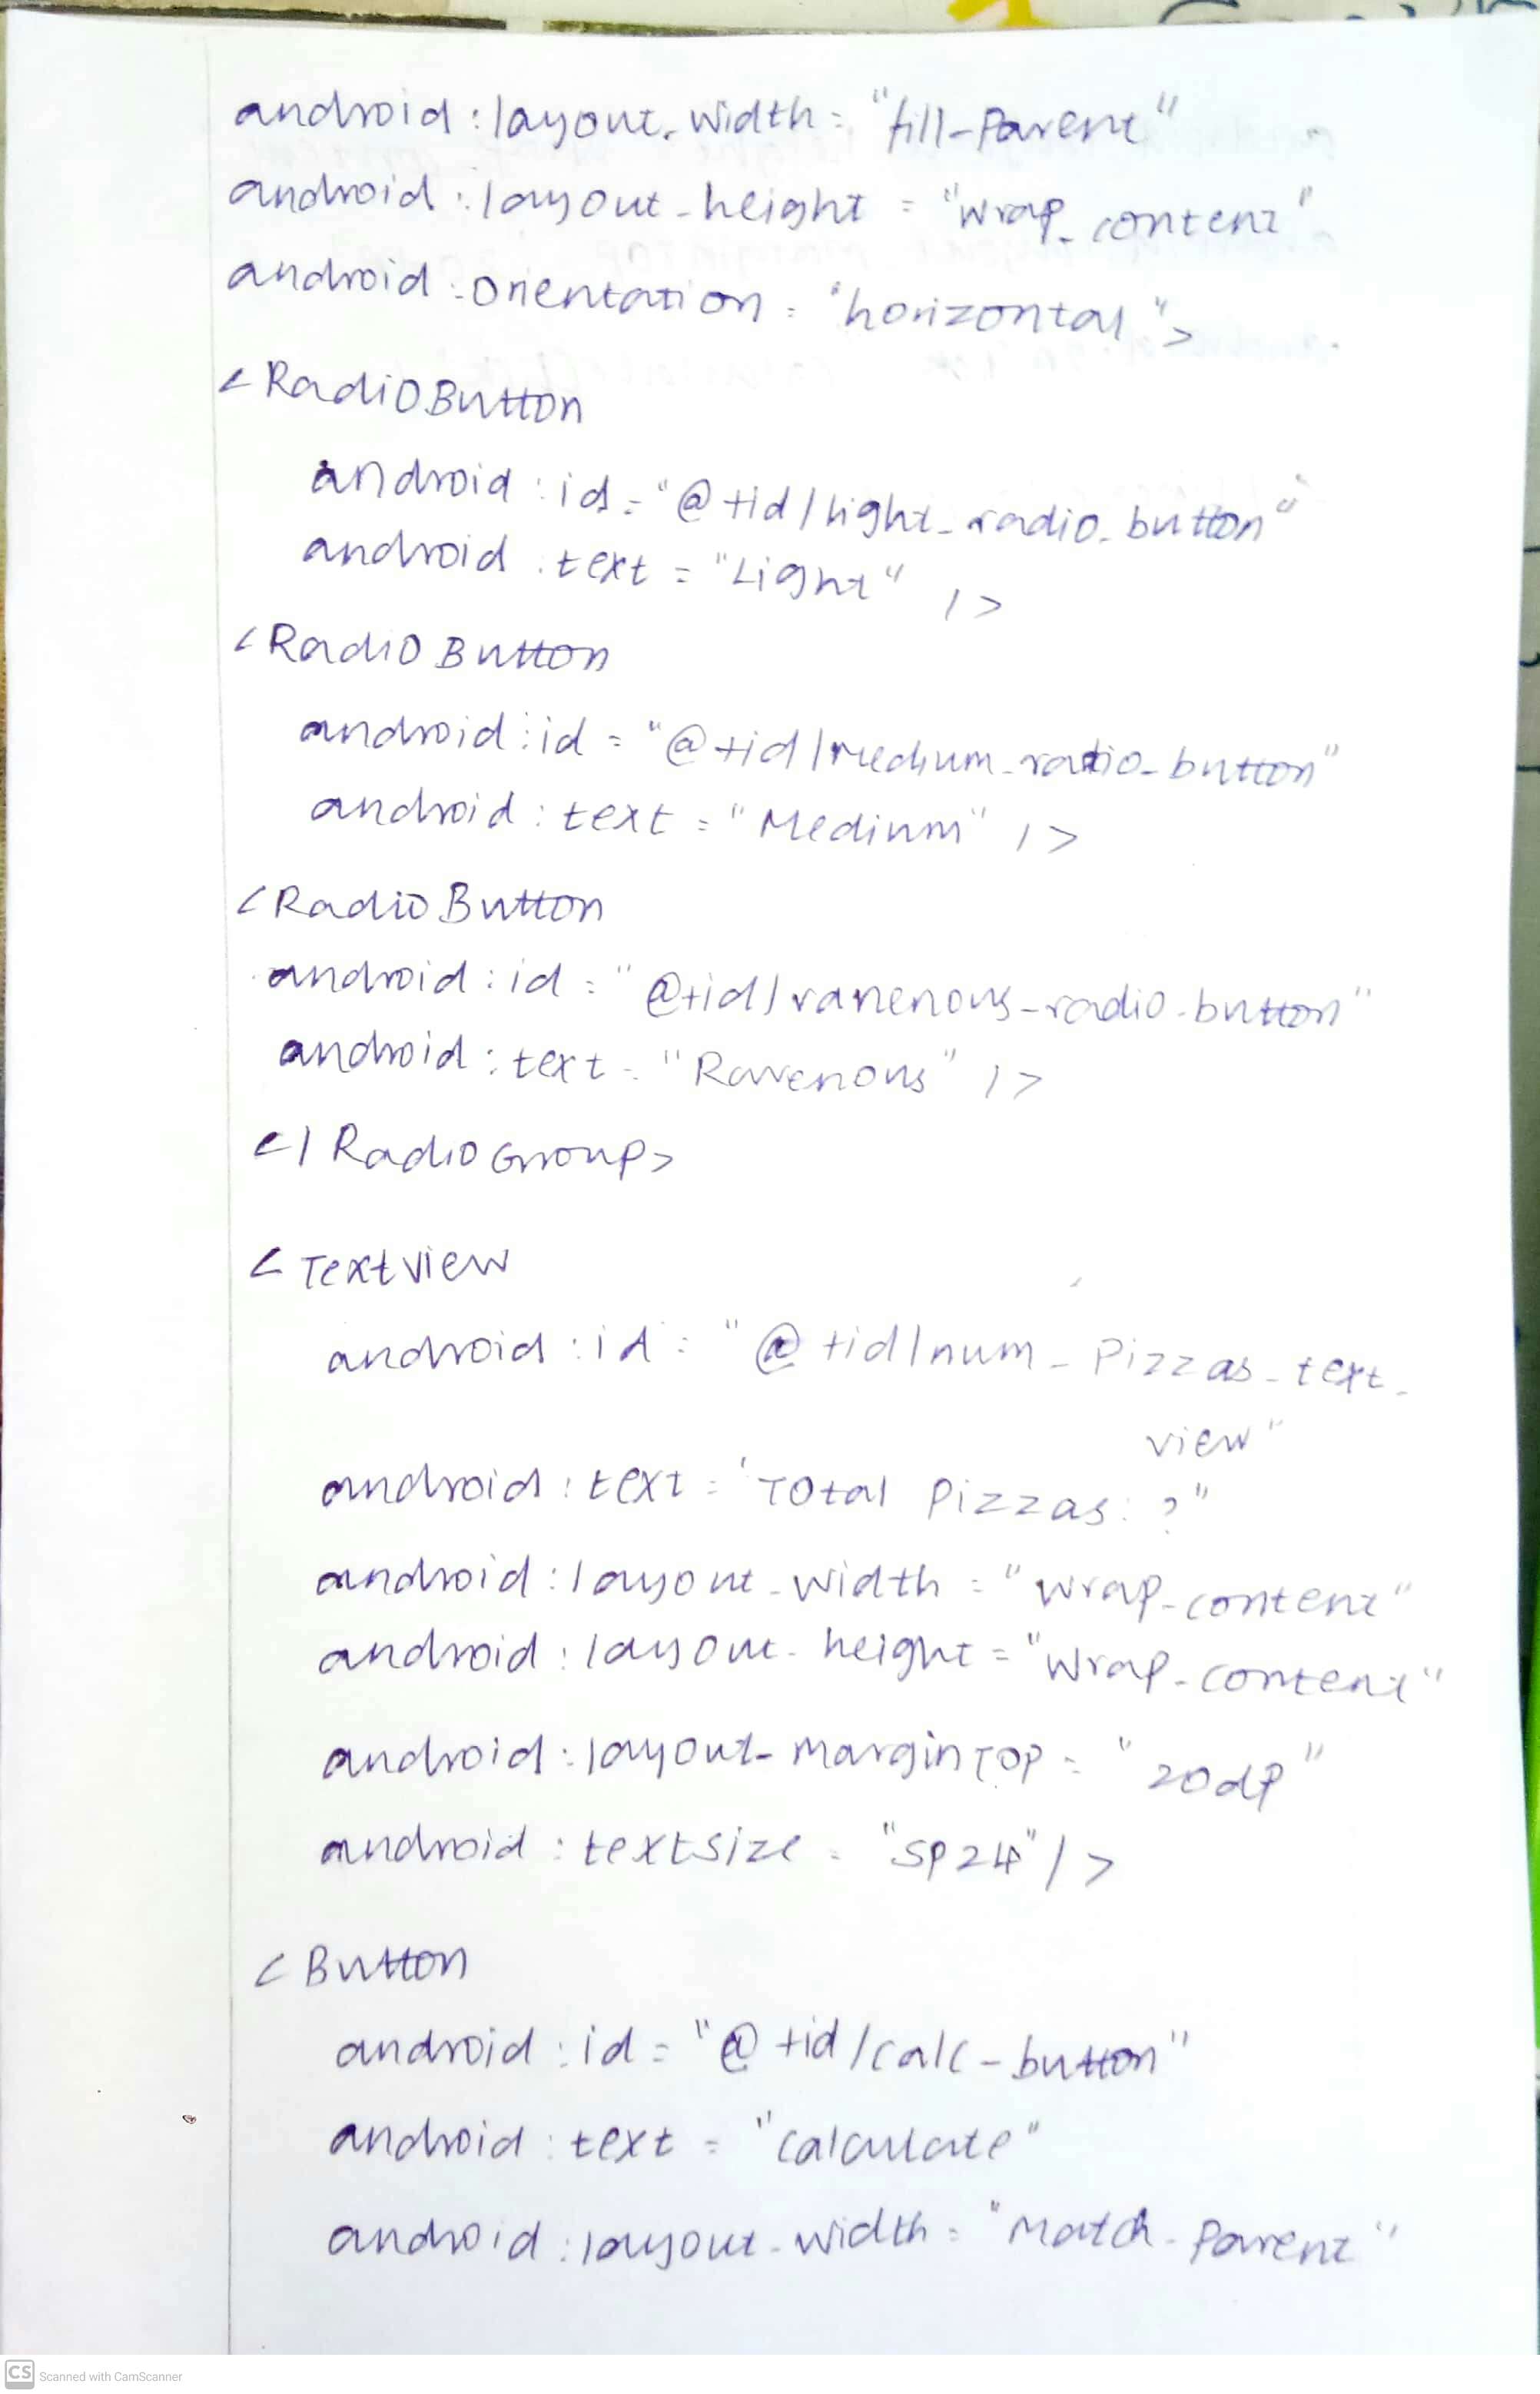 android:layout_width = "fill-Parent"
android:layout_height = "wrap_content"
android:orientation = "horizontal">
<RadioButton
android:id = "@+id/light_radio_button"
android:text = "Light" />
<RadioButton
android:id = "@+id/medium_radio_button"
android:text = "Medium" />
<RadioButton
android:id = "@+id/ravenenous_radio_button"
android:text = "Ravenous" />
</RadioGroup>
<Textview
android:id = "@+id/num_Pizzas_text_
view"
android:text = "Total Pizzas: ?"
android:layout_width = "wrap_content"
android:layout_height = "wrap_content"
android:layout_marginTop = "20dp"
android:textsize = "SP24"/>
<Button
android:id = "@+id/calc_button"
android:text = "calculate"
android:layout_width = "Match_Parent"
CS Scanned with CamScanner